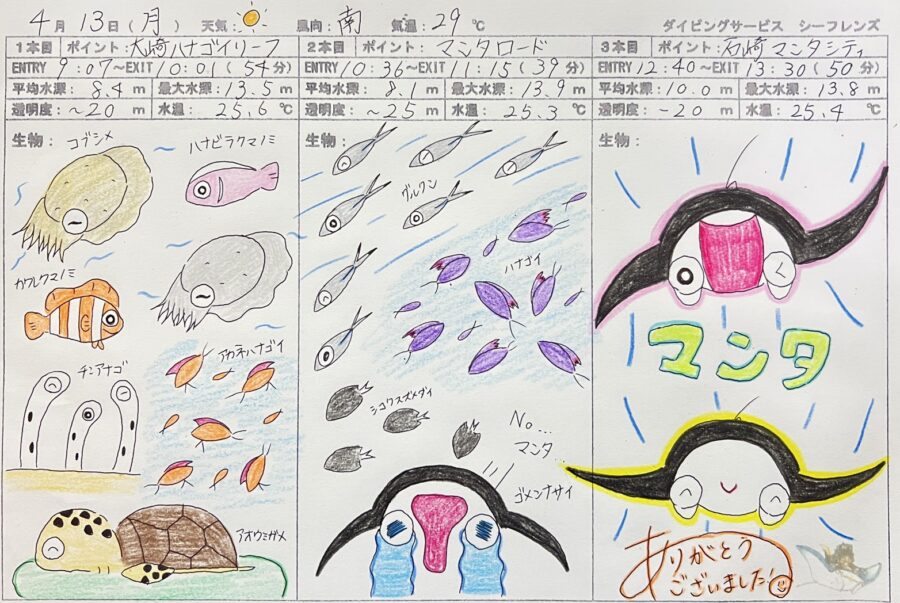 4月 13日(月) 天気: 風向: 南 気温: 29℃ ダイビングサービス シーフレンズ
1本目 ポイント: 大崎ハナゴイリーフ
ENTRY 9:07～EXIT 10:01(54分)
平均水深: 8.4m 最大水深: 13.5m
透明度: ～20m 水温: 25.6℃
生物:
コブシメ
ハナビラクマノミ
カクレクマノミ
アカネハナゴイ
チンアナゴ
アオウミガメ
2本目 ポイント: マンタロード
ENTRY 10:36～EXIT 11:15(39分)
平均水深: 8.1m 最大水深: 13.9m
透明度: ～25m 水温: 25.3℃
生物:
グルクン
ハナゴイ
シコクスズメダイ
No...
マンタ
ゴメンナサイ
3本目 ポイント: 石崎マンタシティ
ENTRY 12:40～EXIT 13:30(50分)
平均水深: 10.0m 最大水深: 13.8m
透明度: ～20m 水温: 25.4℃
生物:
マンタ
ありがとう
ございました!